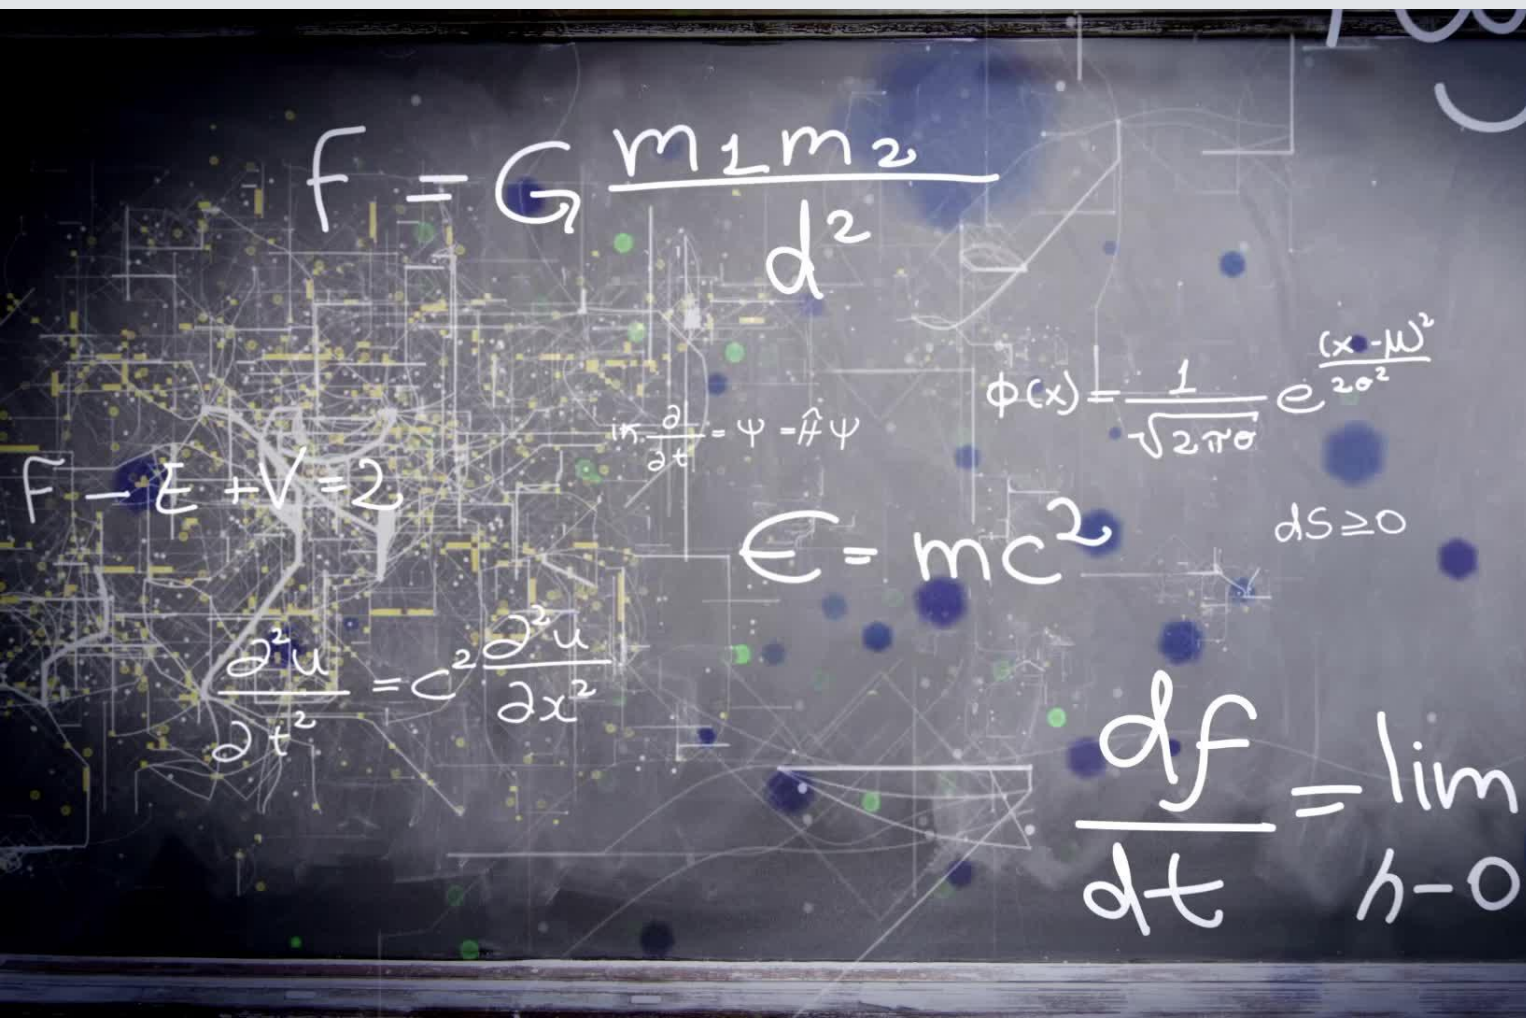 F = G m1m2 / d²
ϕ(x) = 1 / √2πσ e (x-μ)² / 2σ²
iℏ ∂ / ∂t = Ψ = Ĥ Ψ
F - E + V = 2
E = mc²
dS ≥ 0
∂²u / ∂t² = c² ∂²u / ∂x²
df / dt = lim h-0